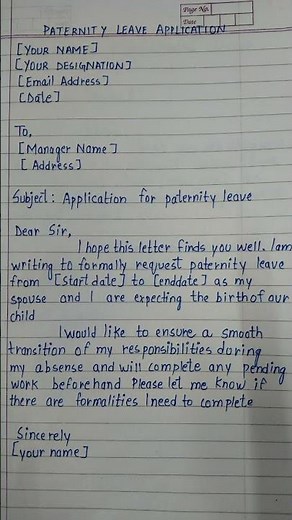 Page No.
Date
PATERNITY LEAVE APPLICATION
[YOUR NAME]
[YOUR DESIGNATION]
[Email Address]
[Date]
To,
[Manager Name]
[Address]
Subject: Application for paternity leave
Dear Sir,
I hope this letter finds you well. I am
writing to formally request paternity leave
from [Start date] to [enddate] as my
spouse and I are expecting the birth of our
child
I would like to ensure a smooth
transition of my responsibilities during
my absense and will complete any pending
work beforehand Please let me know if
there are formalities I need to complete
Sincerely
[your name]